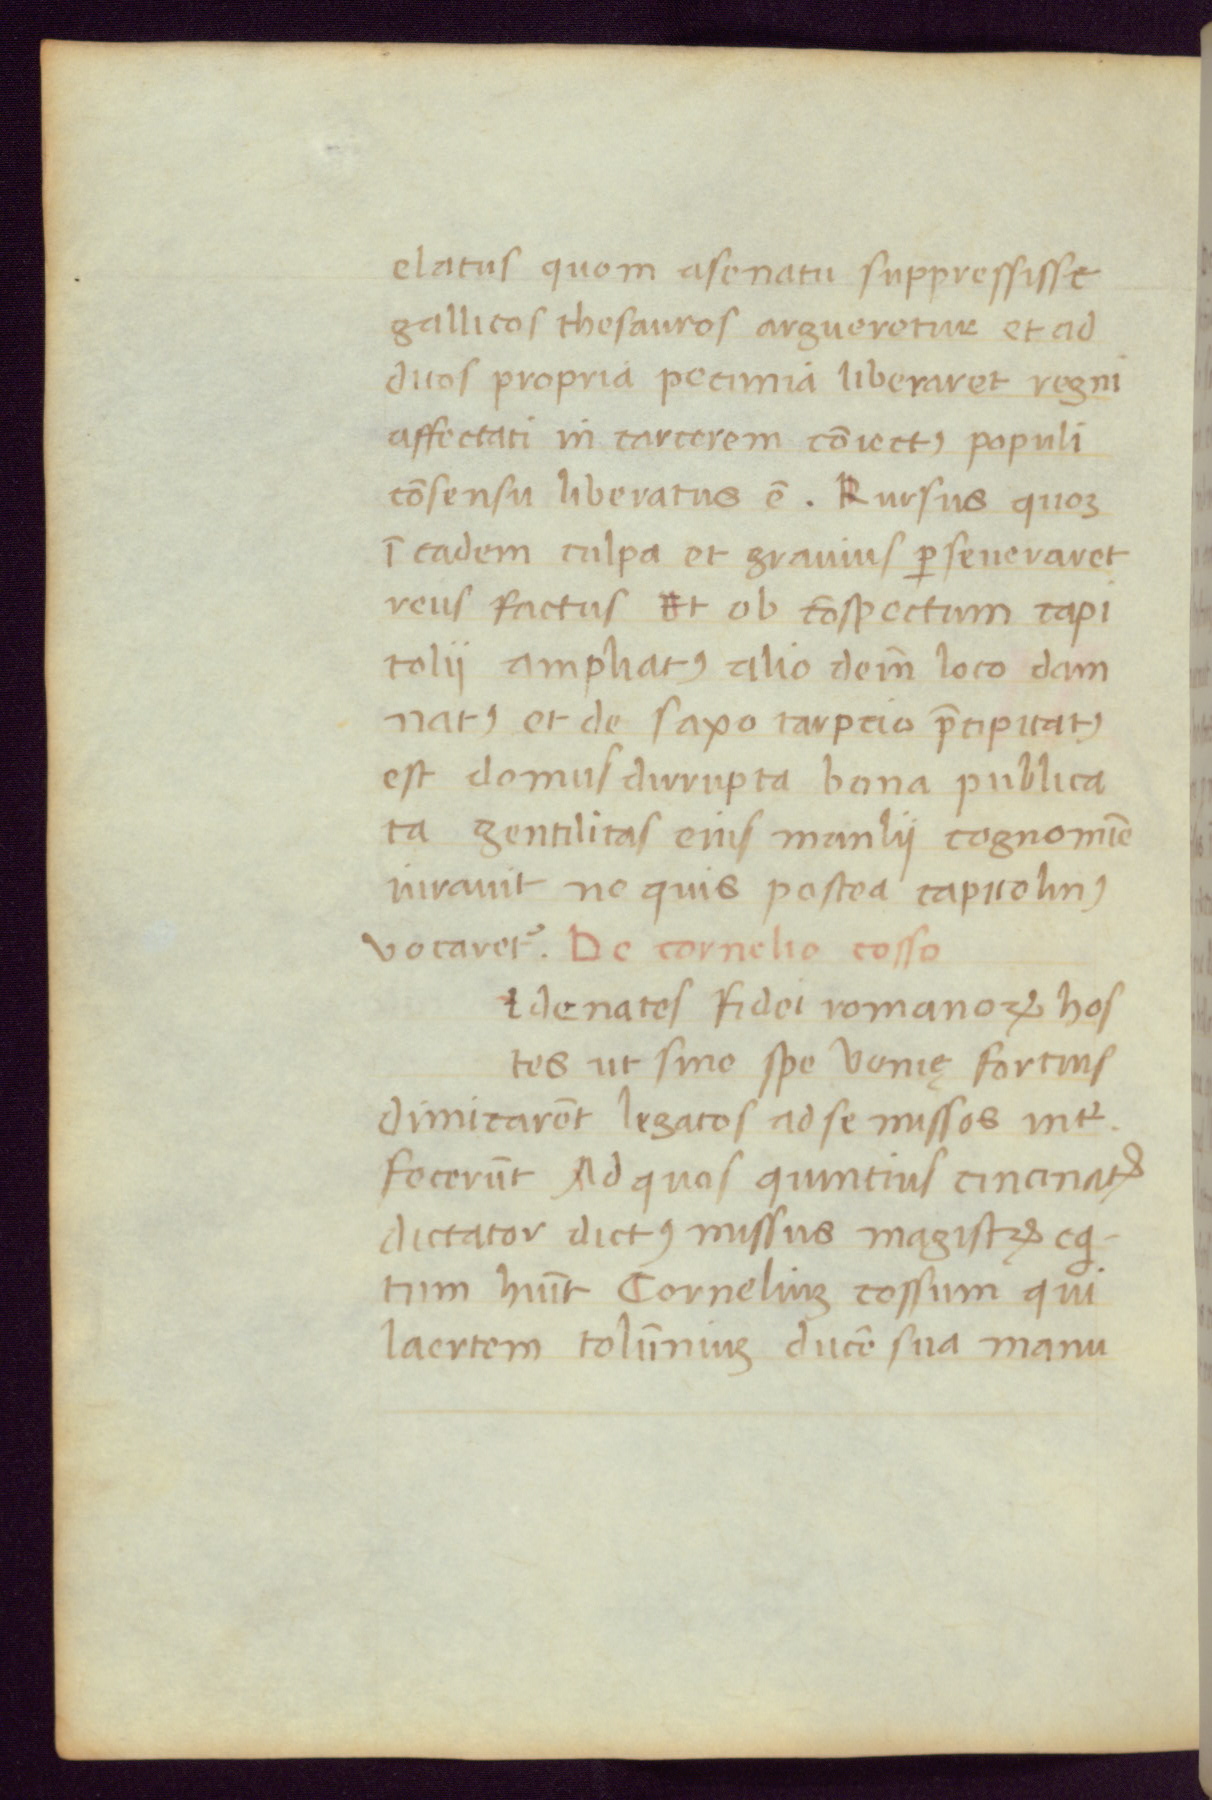 elatus quom asenatu suppressisse
gallicos thesauros argueretur et ad
duos propria pecunia liberaret regni
affectati in carcerem cōiectꝰ populi
cōsensu liberatus ē. Rursus quoꝫ
ī eadem culpa et gravius ꝑseueraret
reus factus Et ob cōspectum capi
tolij ampliatꝰ alio dem̄ loco dam
natꝰ et de saxo tarpeio p̄cipitatꝰ
est domus dirrupta bona publica
ta gentilitas eius manlij cognomīe
iuravit ne quis postea capitolinꝰ
vocaret᷑. De cornelio cosso
idenates fidei romanoꝝ hos
tes ut sine spe venię fortius
dimicarēt legatos ad se missos int̄.
fecerūt Ad quos quintius cincinatꝰ
dictator dictꝰ missus magistꝝ eq̄
tum huīt Corneliuꝫ cossum qui
laertem tolūniuꝫ ducē sua manu